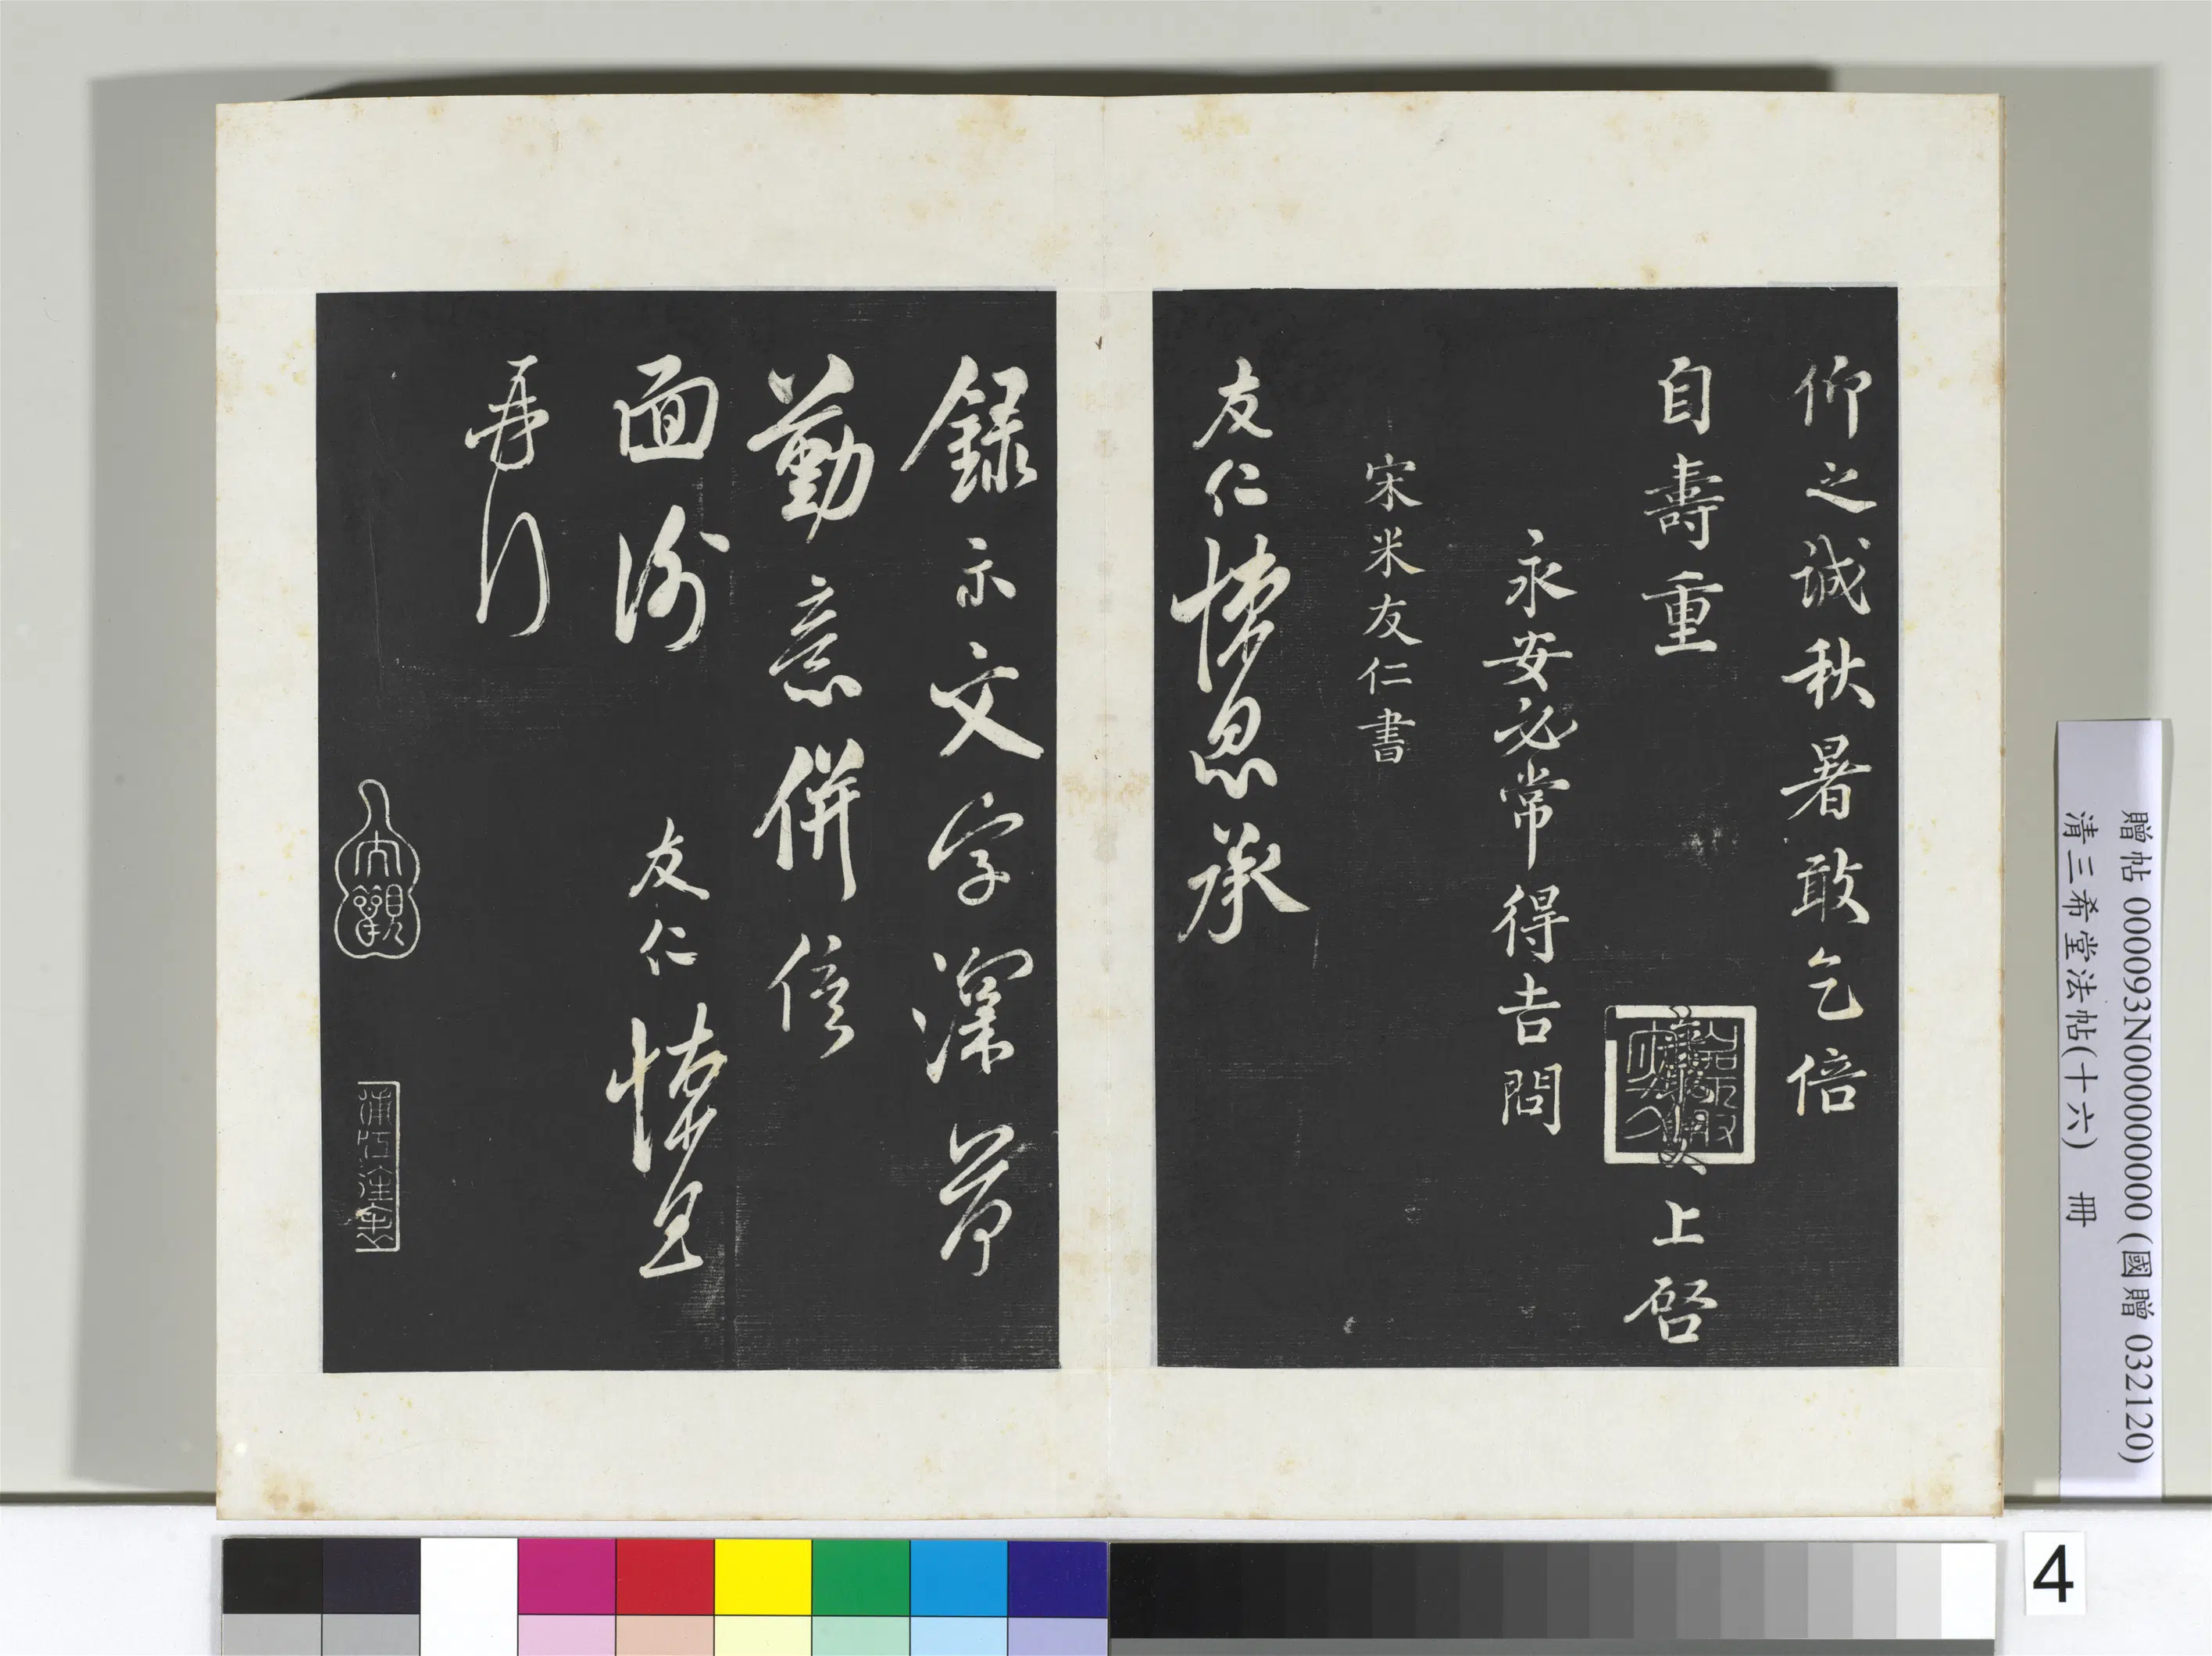 仰之誠秋暑敢乞倍
自壽重
上啓
永安必常得吉問
宋米友仁書
友仁悚息承
錄示文字深荷
勤意併俟
面謝
友仁悚息
再行
大觀
贈帖 000093N000000000 (國贈 032120)
清三希堂法帖(十六) 冊
4